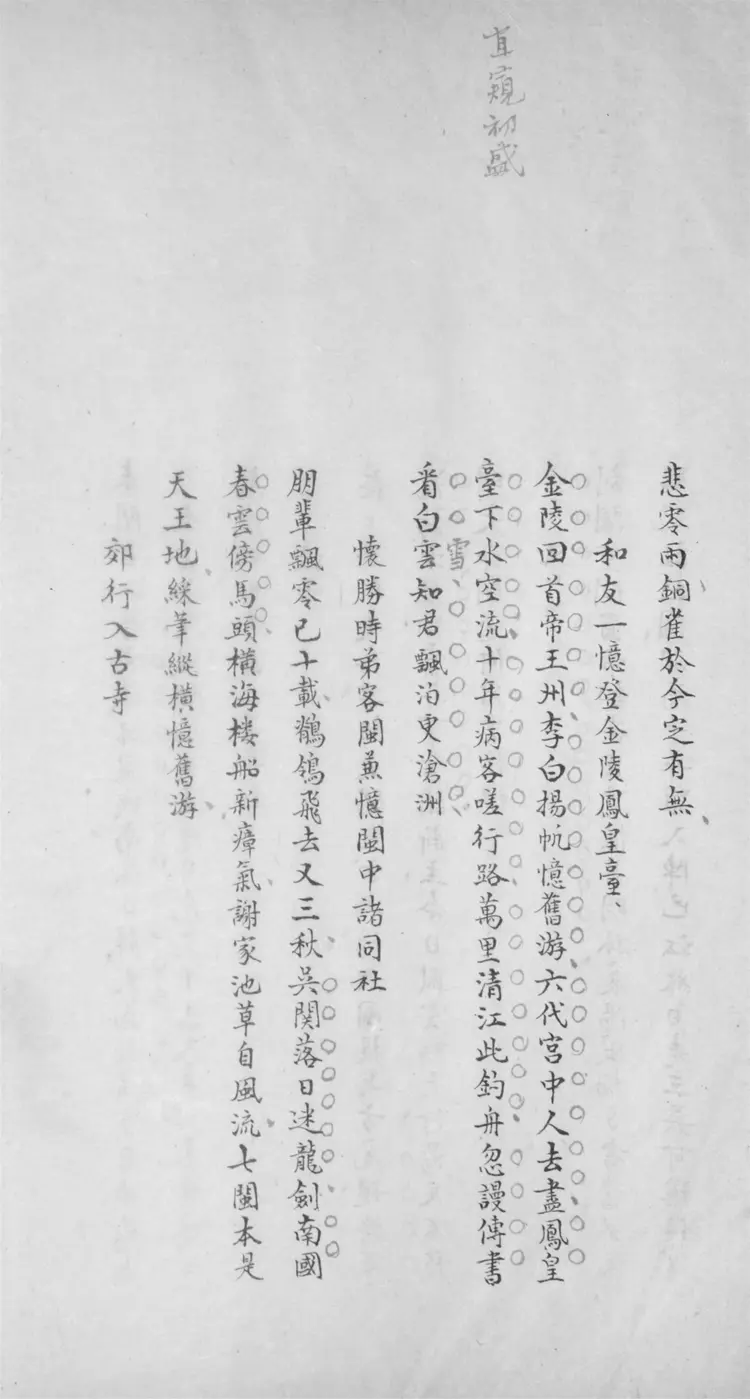 直窺初盛
悲零雨銅雀於今定有無
和友一憶登金陵鳳皇臺
金陵回首帝王州李白揚帆憶舊游六代宮中人去盡鳳皇
臺下水空流十年病客嗟行路萬里清江此釣舟忽謾傳書
看白雲知君飄泊更滄洲
雪
懷勝時弟客閩兼憶閩中諸同社
朋輩飄零已十載鶺鴒飛去又三秋吳関落日迷龍劍南國
春雲傍馬頭橫海楼船新瘴氣謝家池草自風流七閩本是
天王地綵筆縱橫憶舊游
郊行入古寺